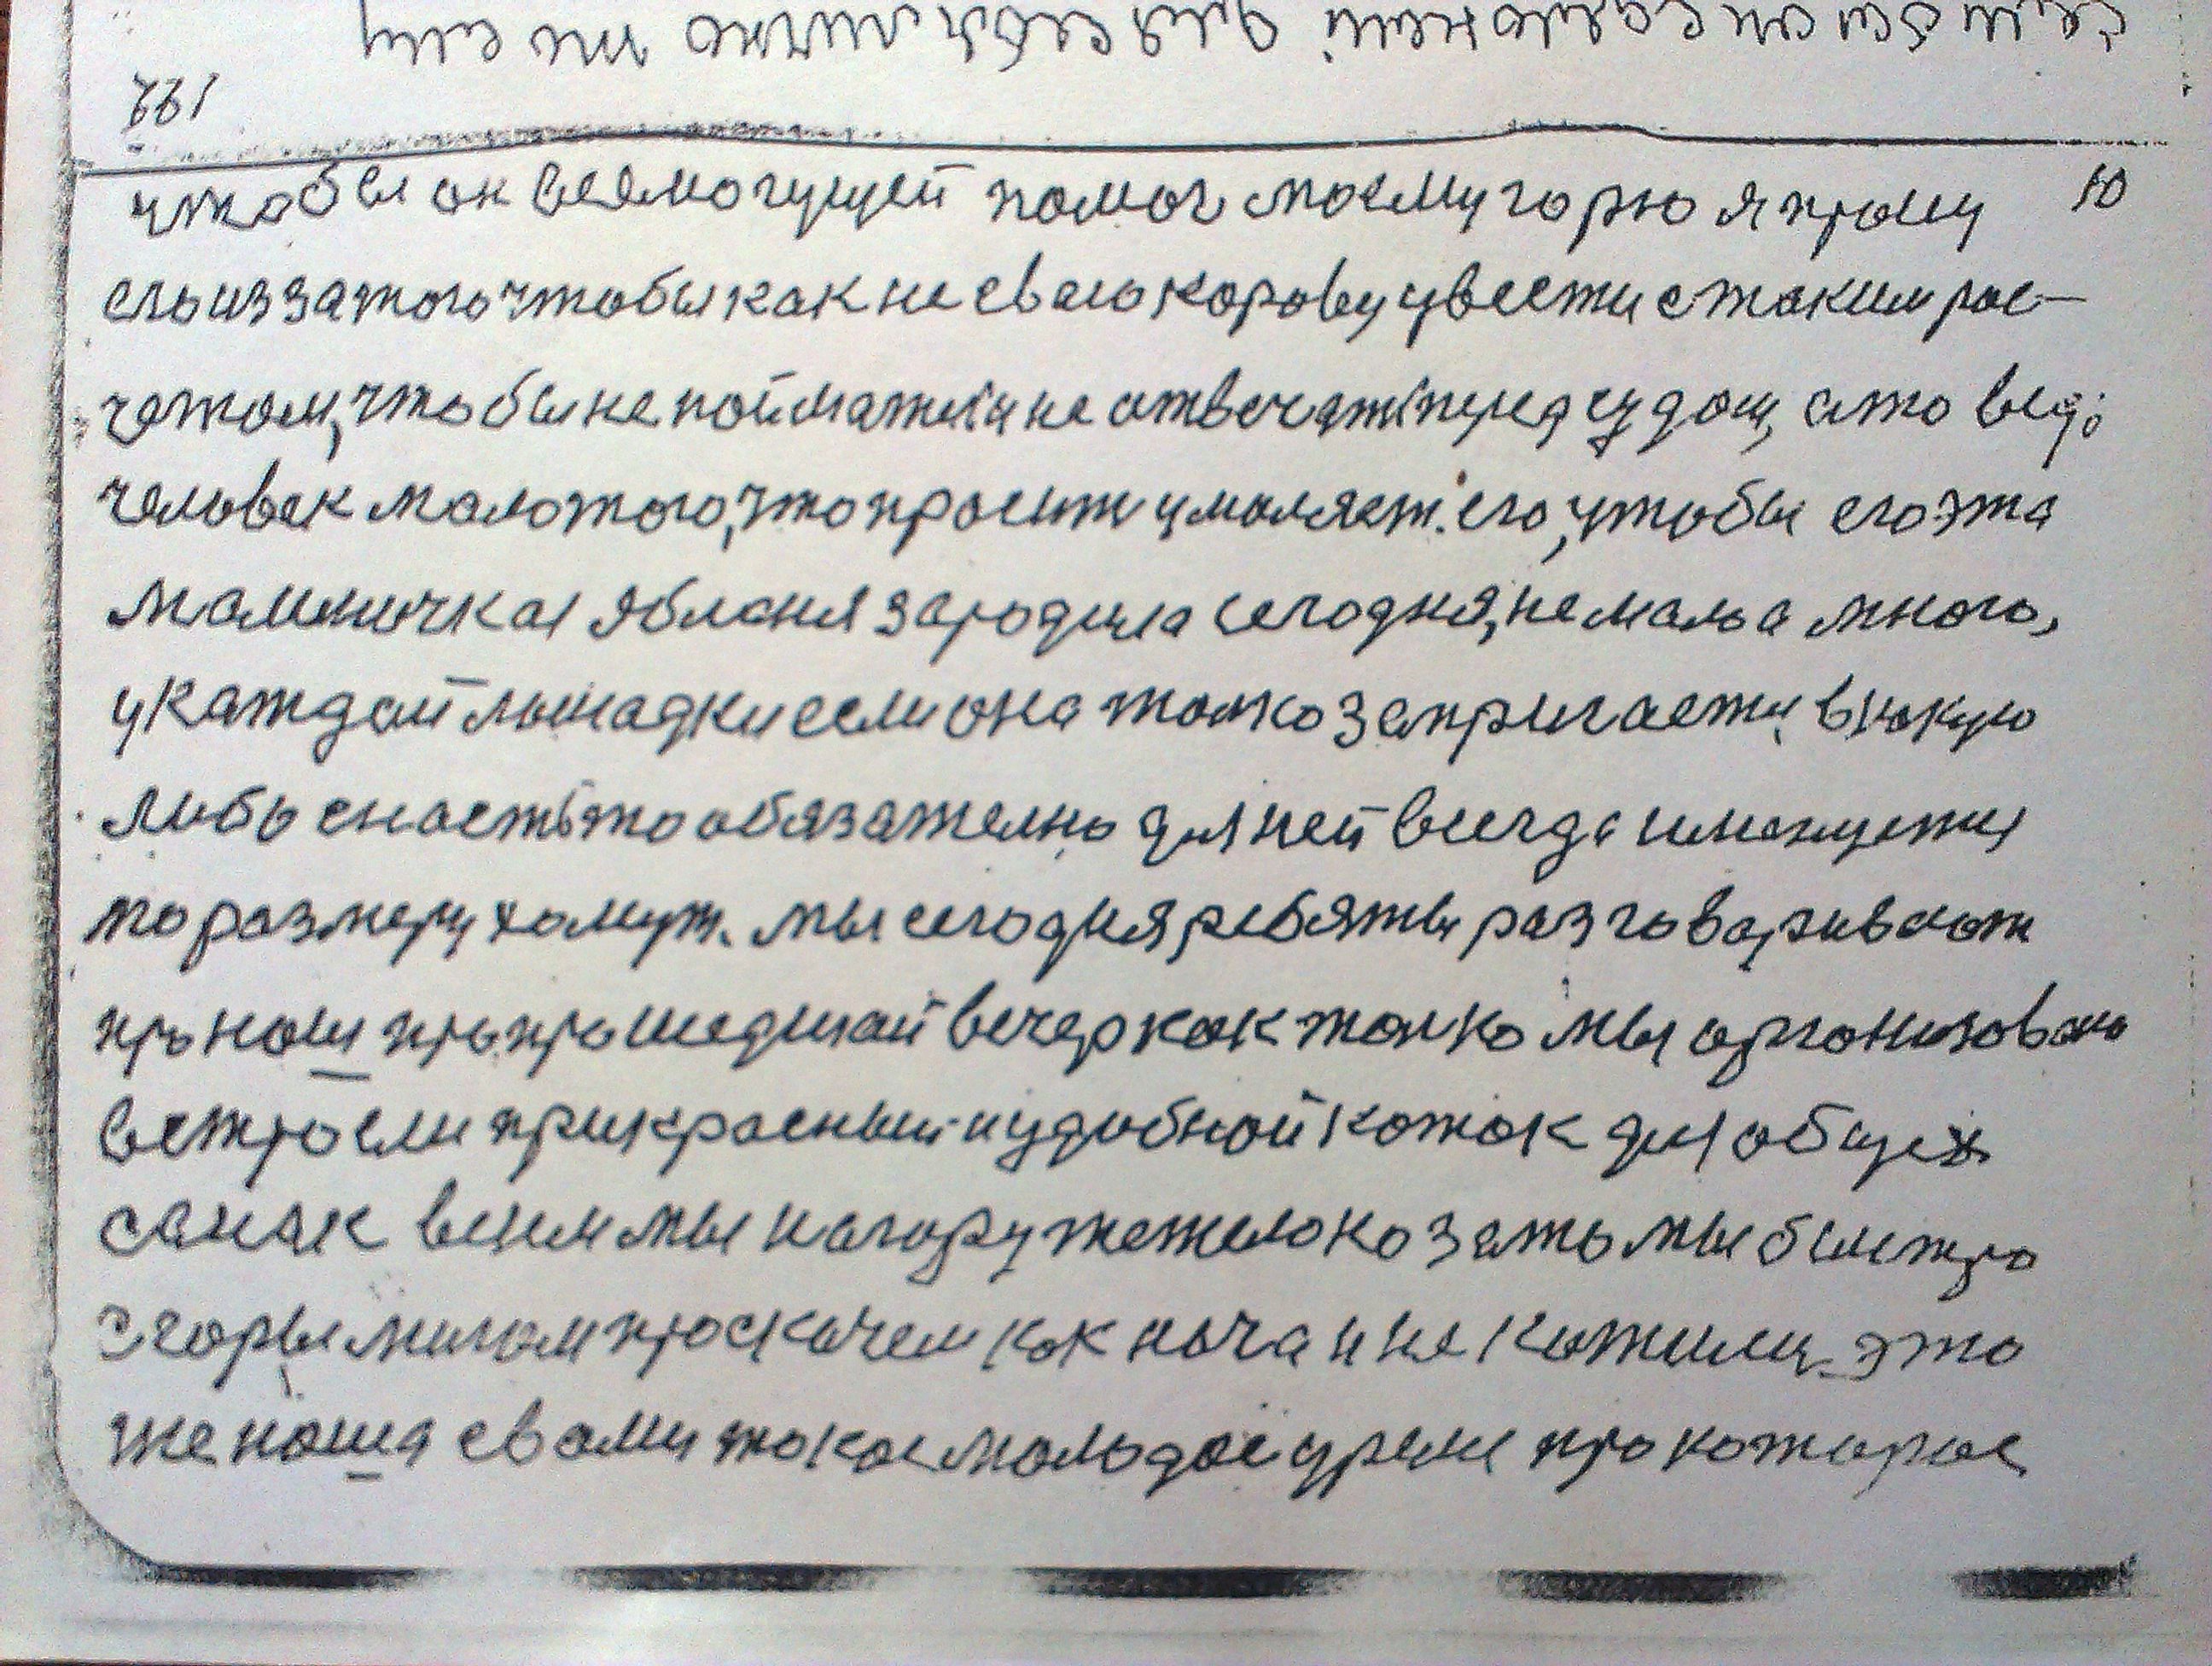 10
чтобы он всемогущей помог моему горю я прошу
его из за того чтобы как не свою корову увести с таким рос-
четом, чтобы не поймали и не отвечать перед судом, а то ведь
человек мало того, что просит умоляет его, чтобы его эта
мамничкая яблоня зародила сегодня, не мало а много,
у каждой лошадки если она толко запригается в какую
либо снасть то обязателно для ней всегда имающется
по размеру хомут. мы сегодня ребяты разговаривают
про наш пропрошедшай вечер как толко мы организовано
встроели прикрасный и удобной каток для общех
санак вним мы на гору тежело но зато мы быстро
с горы мигом проскачем как ночаиня катили, это
же наша свами такое молодое уремя про которое